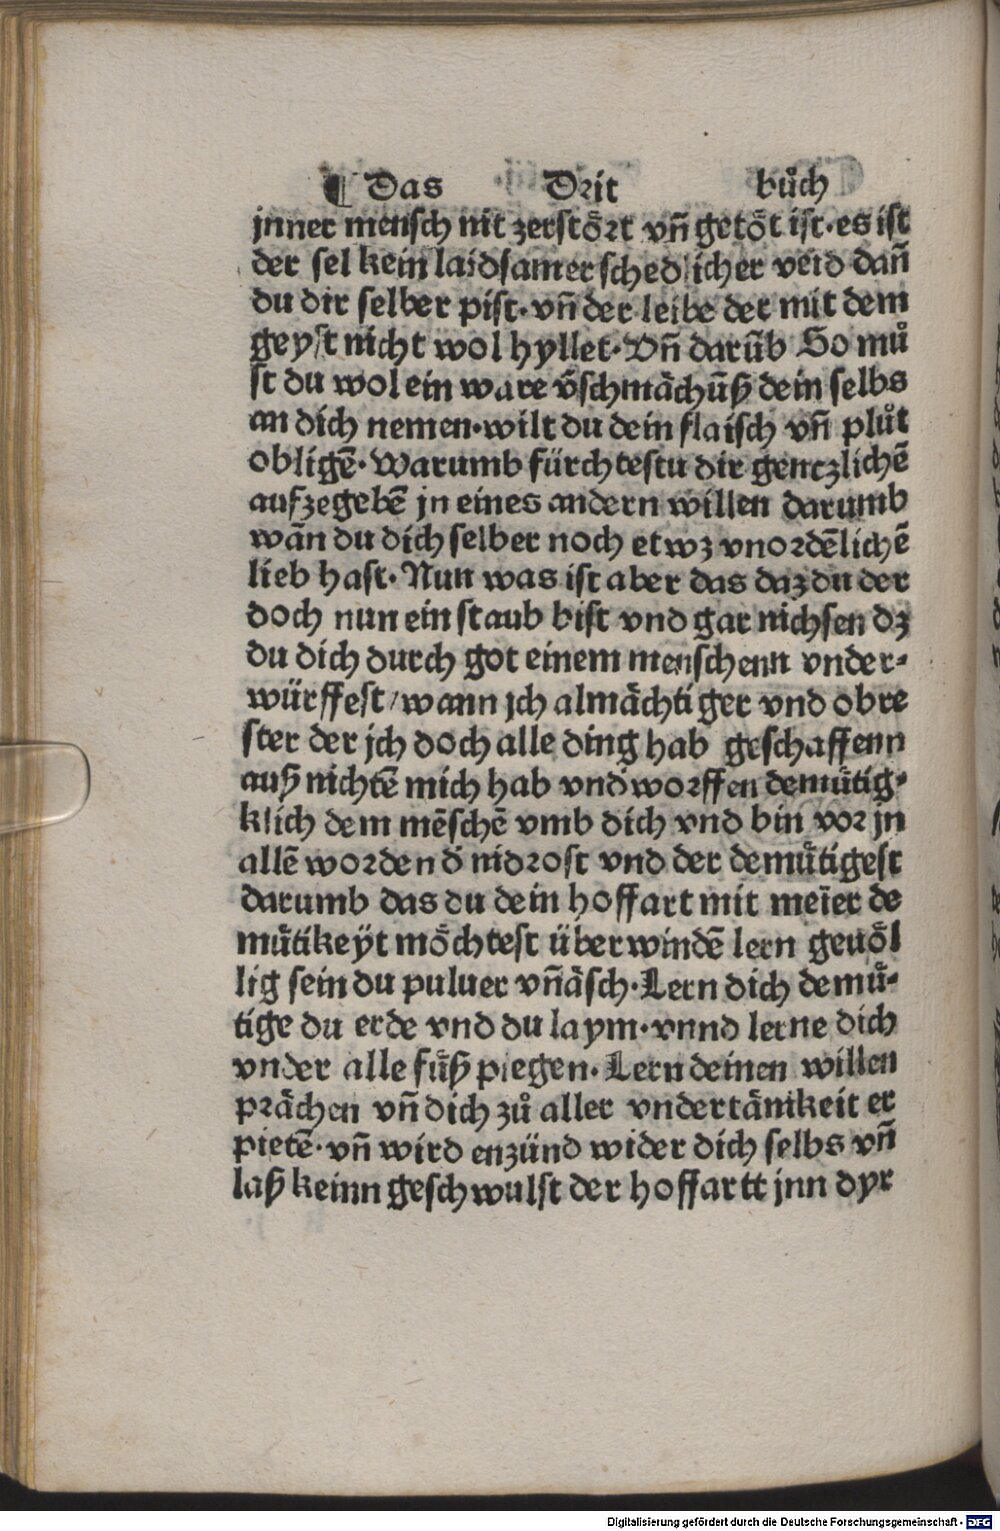 ¶ Das Drit bůch
jnner mensch nit zerstört vñ getöt ist·es ist
der sel kein laidsamer schedlicher veid dañ
du dir selber pist·vñ der leibe der mit dem
geyst nicht wol hyllet·Vñ darũb So mů
st du wol ein ware v̄schmächũß dein selbs
an dich nemen·wilt du dein flaisch vñ plůt
obligē·Warumb fürchtestu dir gentzlichē
aufzegebē jn eines andern willen darumb
wān du dich selber noch etwz vnordēlichē
lieb hast·Nun was ist aber das daz du der
doch nun ein staub bist vnd gar nichsen dz
du dich durch got einem menschenn vnder⸗
würffest/wann jch almächtiger vnd obre
ster der jch doch alle ding hab geschaffenn
auß nichtē mich hab vnd̕worffen demütig⸗
klich dem mēschē vmb dich vnd bin vor jn
allē worden d̕ nidrost vnd der demütigest
darumb das du dein hoffart mit meīer de
mütikeÿt möchtest überwindē lern geuöl
lig sein du puluer vñ äsch·Lern dich demů⸗
tige du erde vnd du laym·vnnd lerne dich
vnder alle füß piegen·Lern deinen willen
prächen vñ dich zů aller vndertänikeit er
pietē·vñ wird enzünd wider dich selbs vñ
laß keinn geschwulst der hoffartt jnn dyr
Digitalisierung gefördert durch die Deutsche Forschungsgemeinschaft - DFG